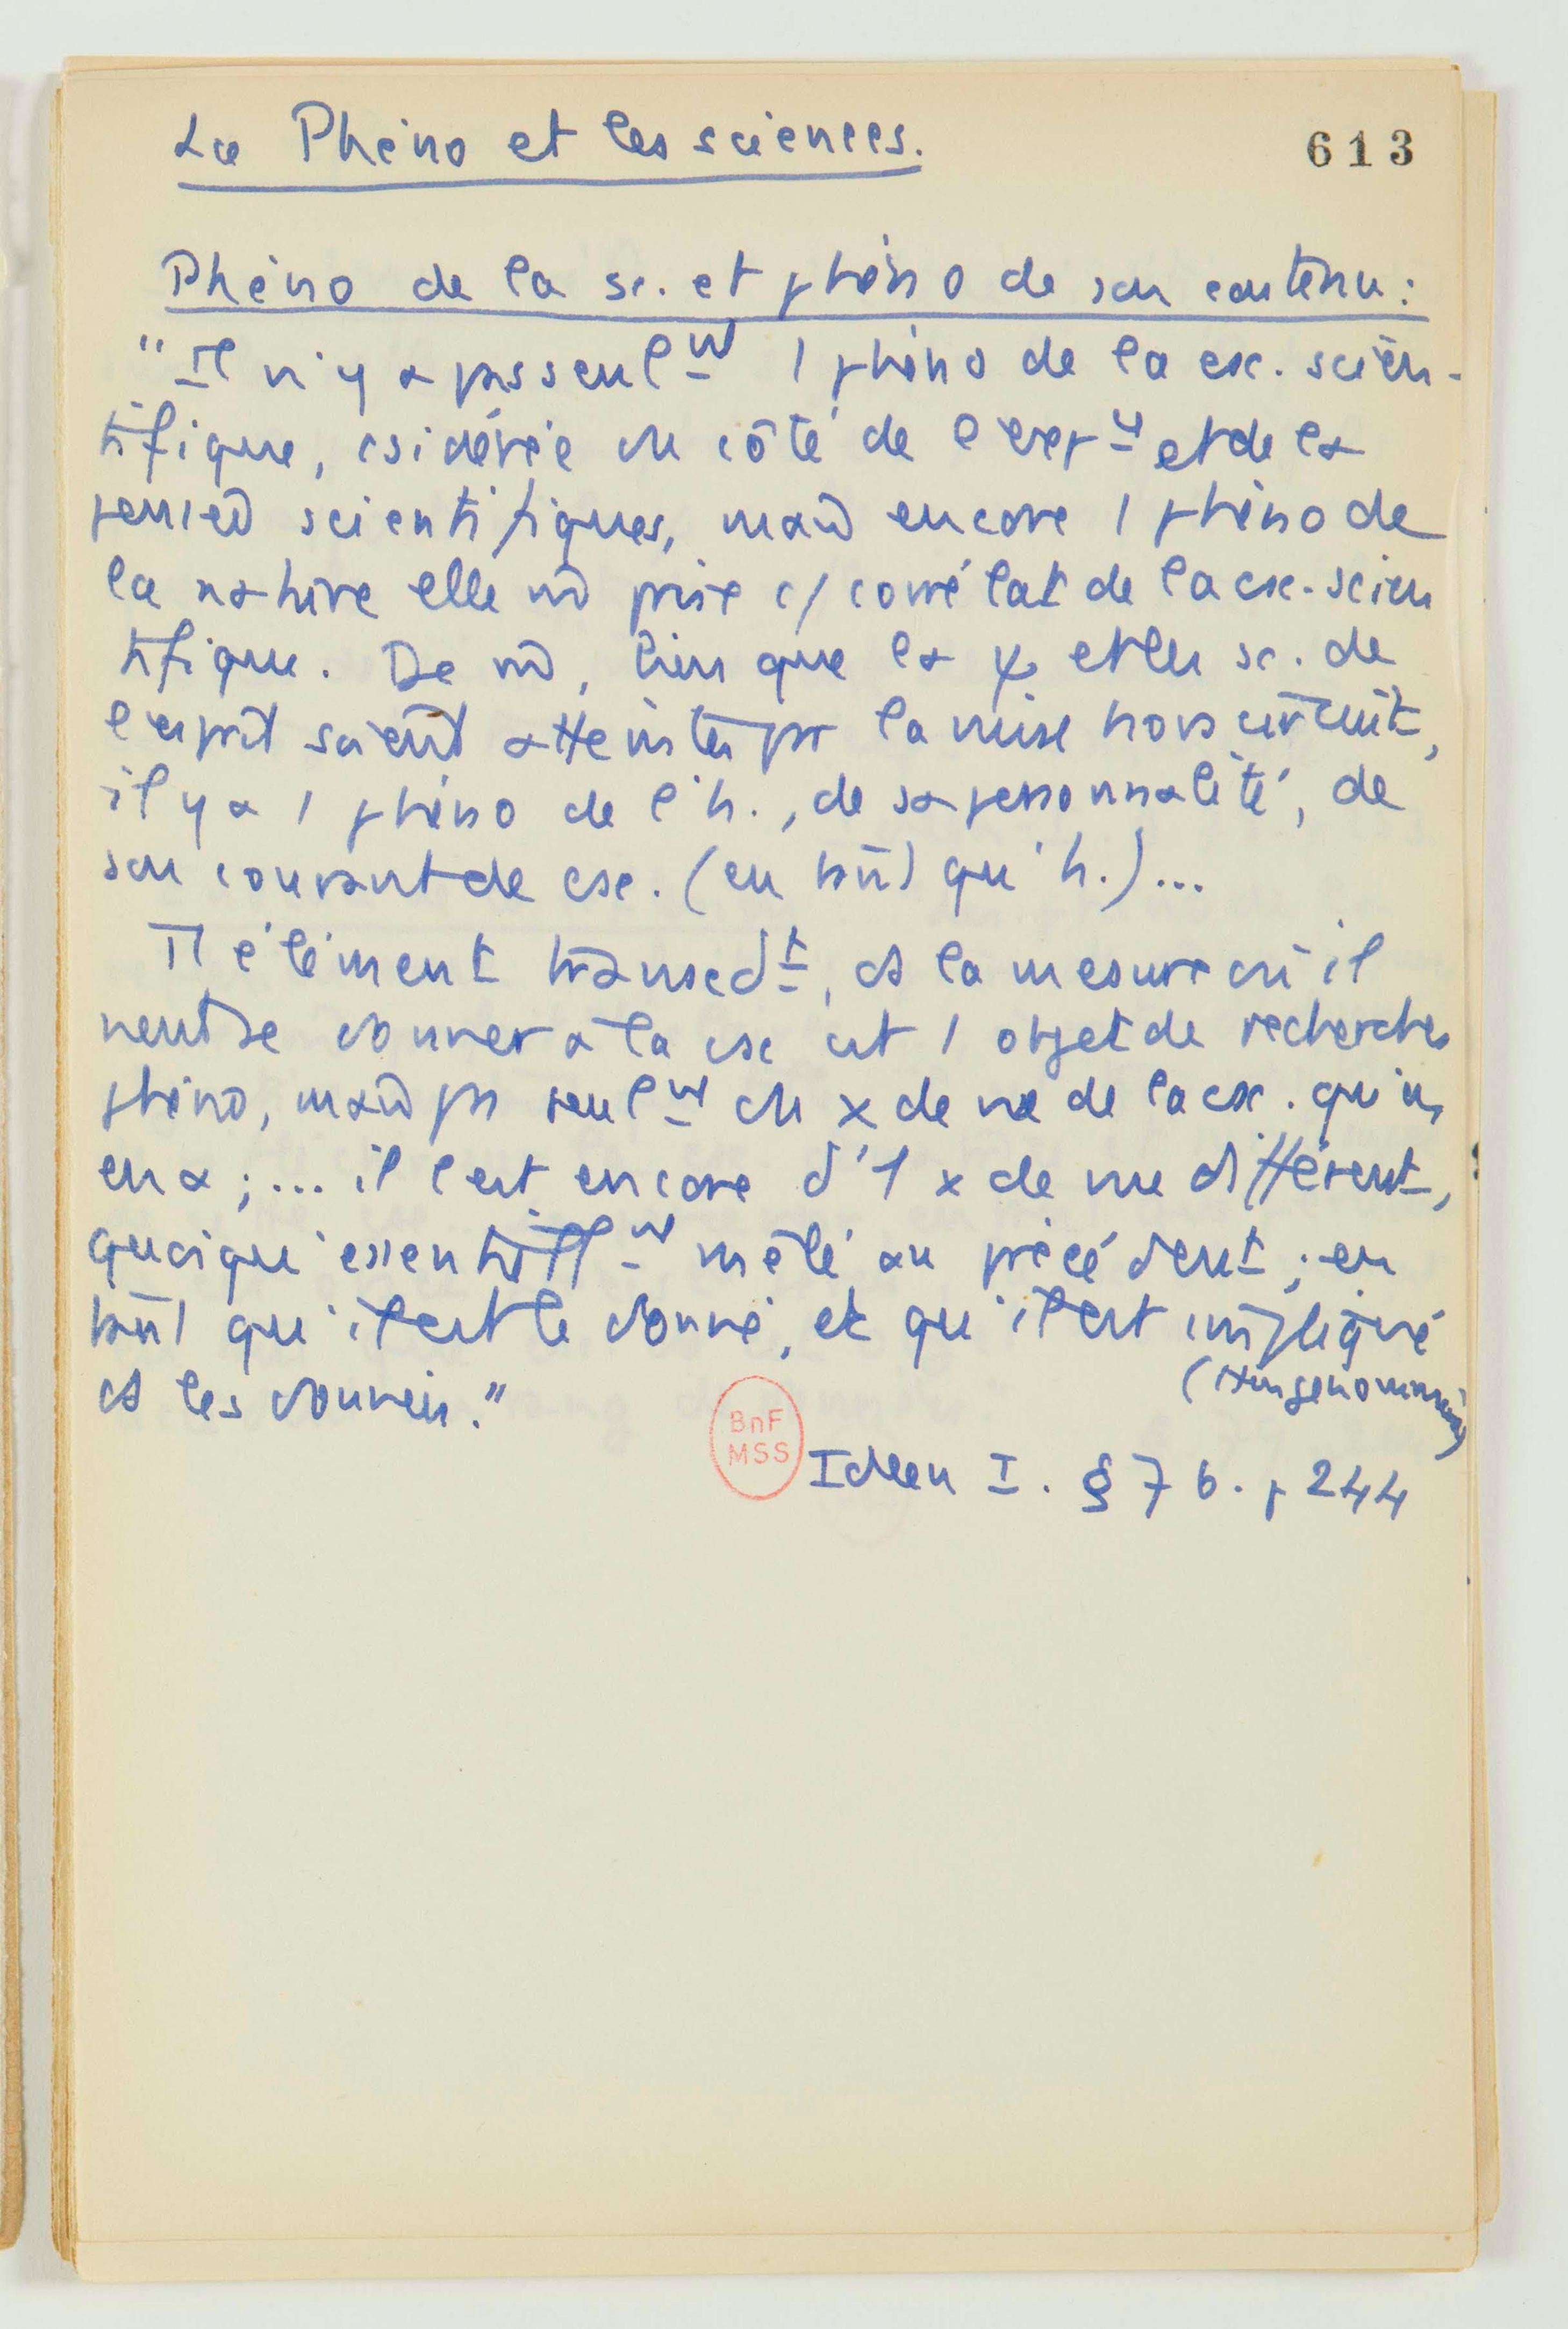 La Phéno et les sciences.
613
Phéno de la sc. et phéno de son contenu :
"Il n'y a pas seulᵗ 1 phéno de la csc. scien-
tifique, csidérée du côté de l'expᶜᵉ et de la
pensée scientifiques, mais encore 1 phéno de
la nature elle mê prise c/ corrélat de la csc. scien
tifique. De mê, bien que la ψ et les sc. de
l'esprit soient atteintes par la mise hors circuit,
il y a 1 phéno de l'h., de sa personnalité, de
son courant de csc. (en tant qu'h.)...
élément transcdᵗ, ds la mesure où il
peut se donner à la csc est 1 objet de recherches
phéno, mais pas seulᵗ du x de vue de la csc. qu'on
en a ; ... il l'est encore d'1 x de vue différent,
quoiqu'essentiellᵗ mêlé au précédent ; en
tant qu'il est le donné, et qu'il est impliqué
ds les données."
BnF
MSS
Ideen I. § 76. p 244